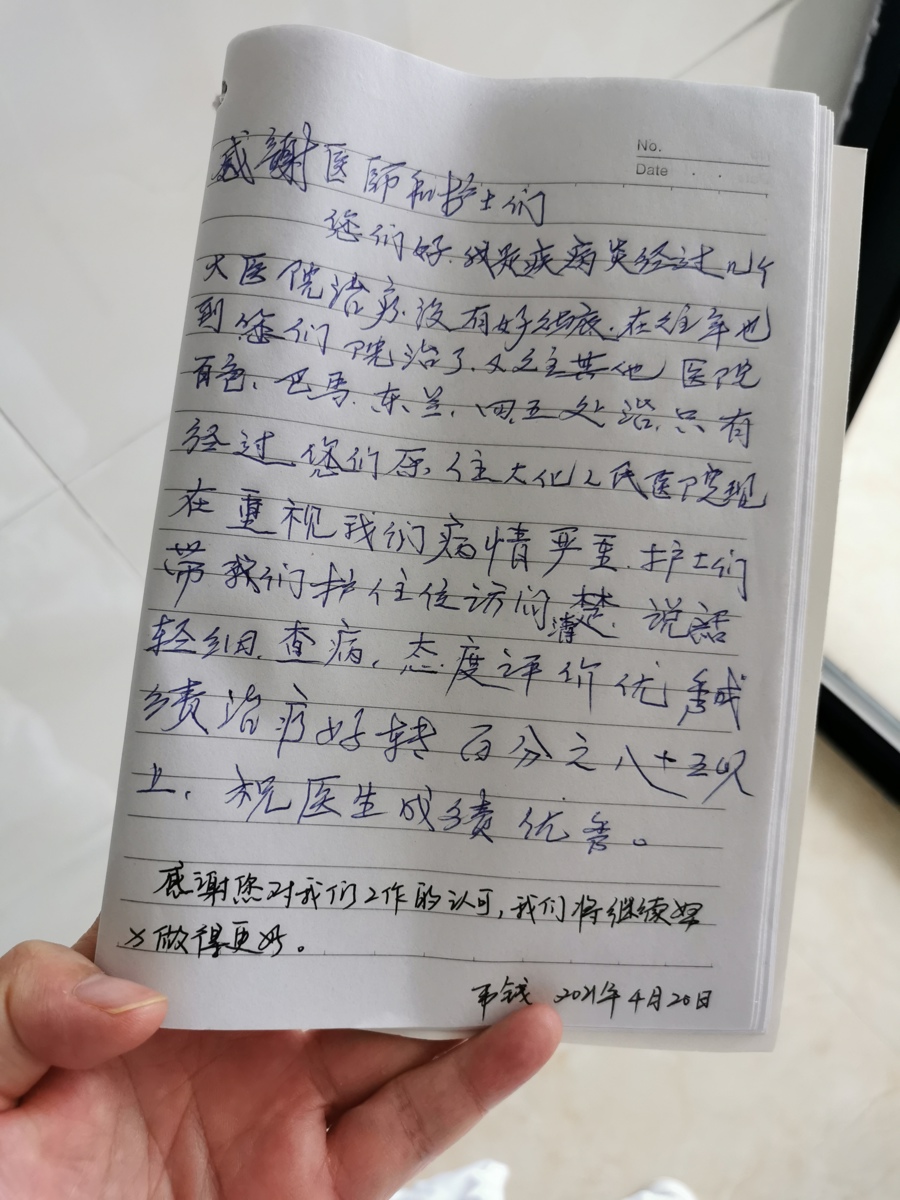 No.
Date
感謝医师和护士们
您们好.我是疾病炎经过几个
大医院治疗.没有好. 在 年也
到您们院治了.又 其他医院
百色、巴马.东兰.田五处治.只有
经过您们原 住大化人民医院现
在重视我们病情严重.护士们
带我们护住位访问清楚.说話
轻细.查病.态度评价优秀成
绩治疗好转百分之八十五以
上.祝医生成绩优秀。
感謝您对我们工作的认可,我们将继续努
力做得更好。
韦钱 2021年4月20日